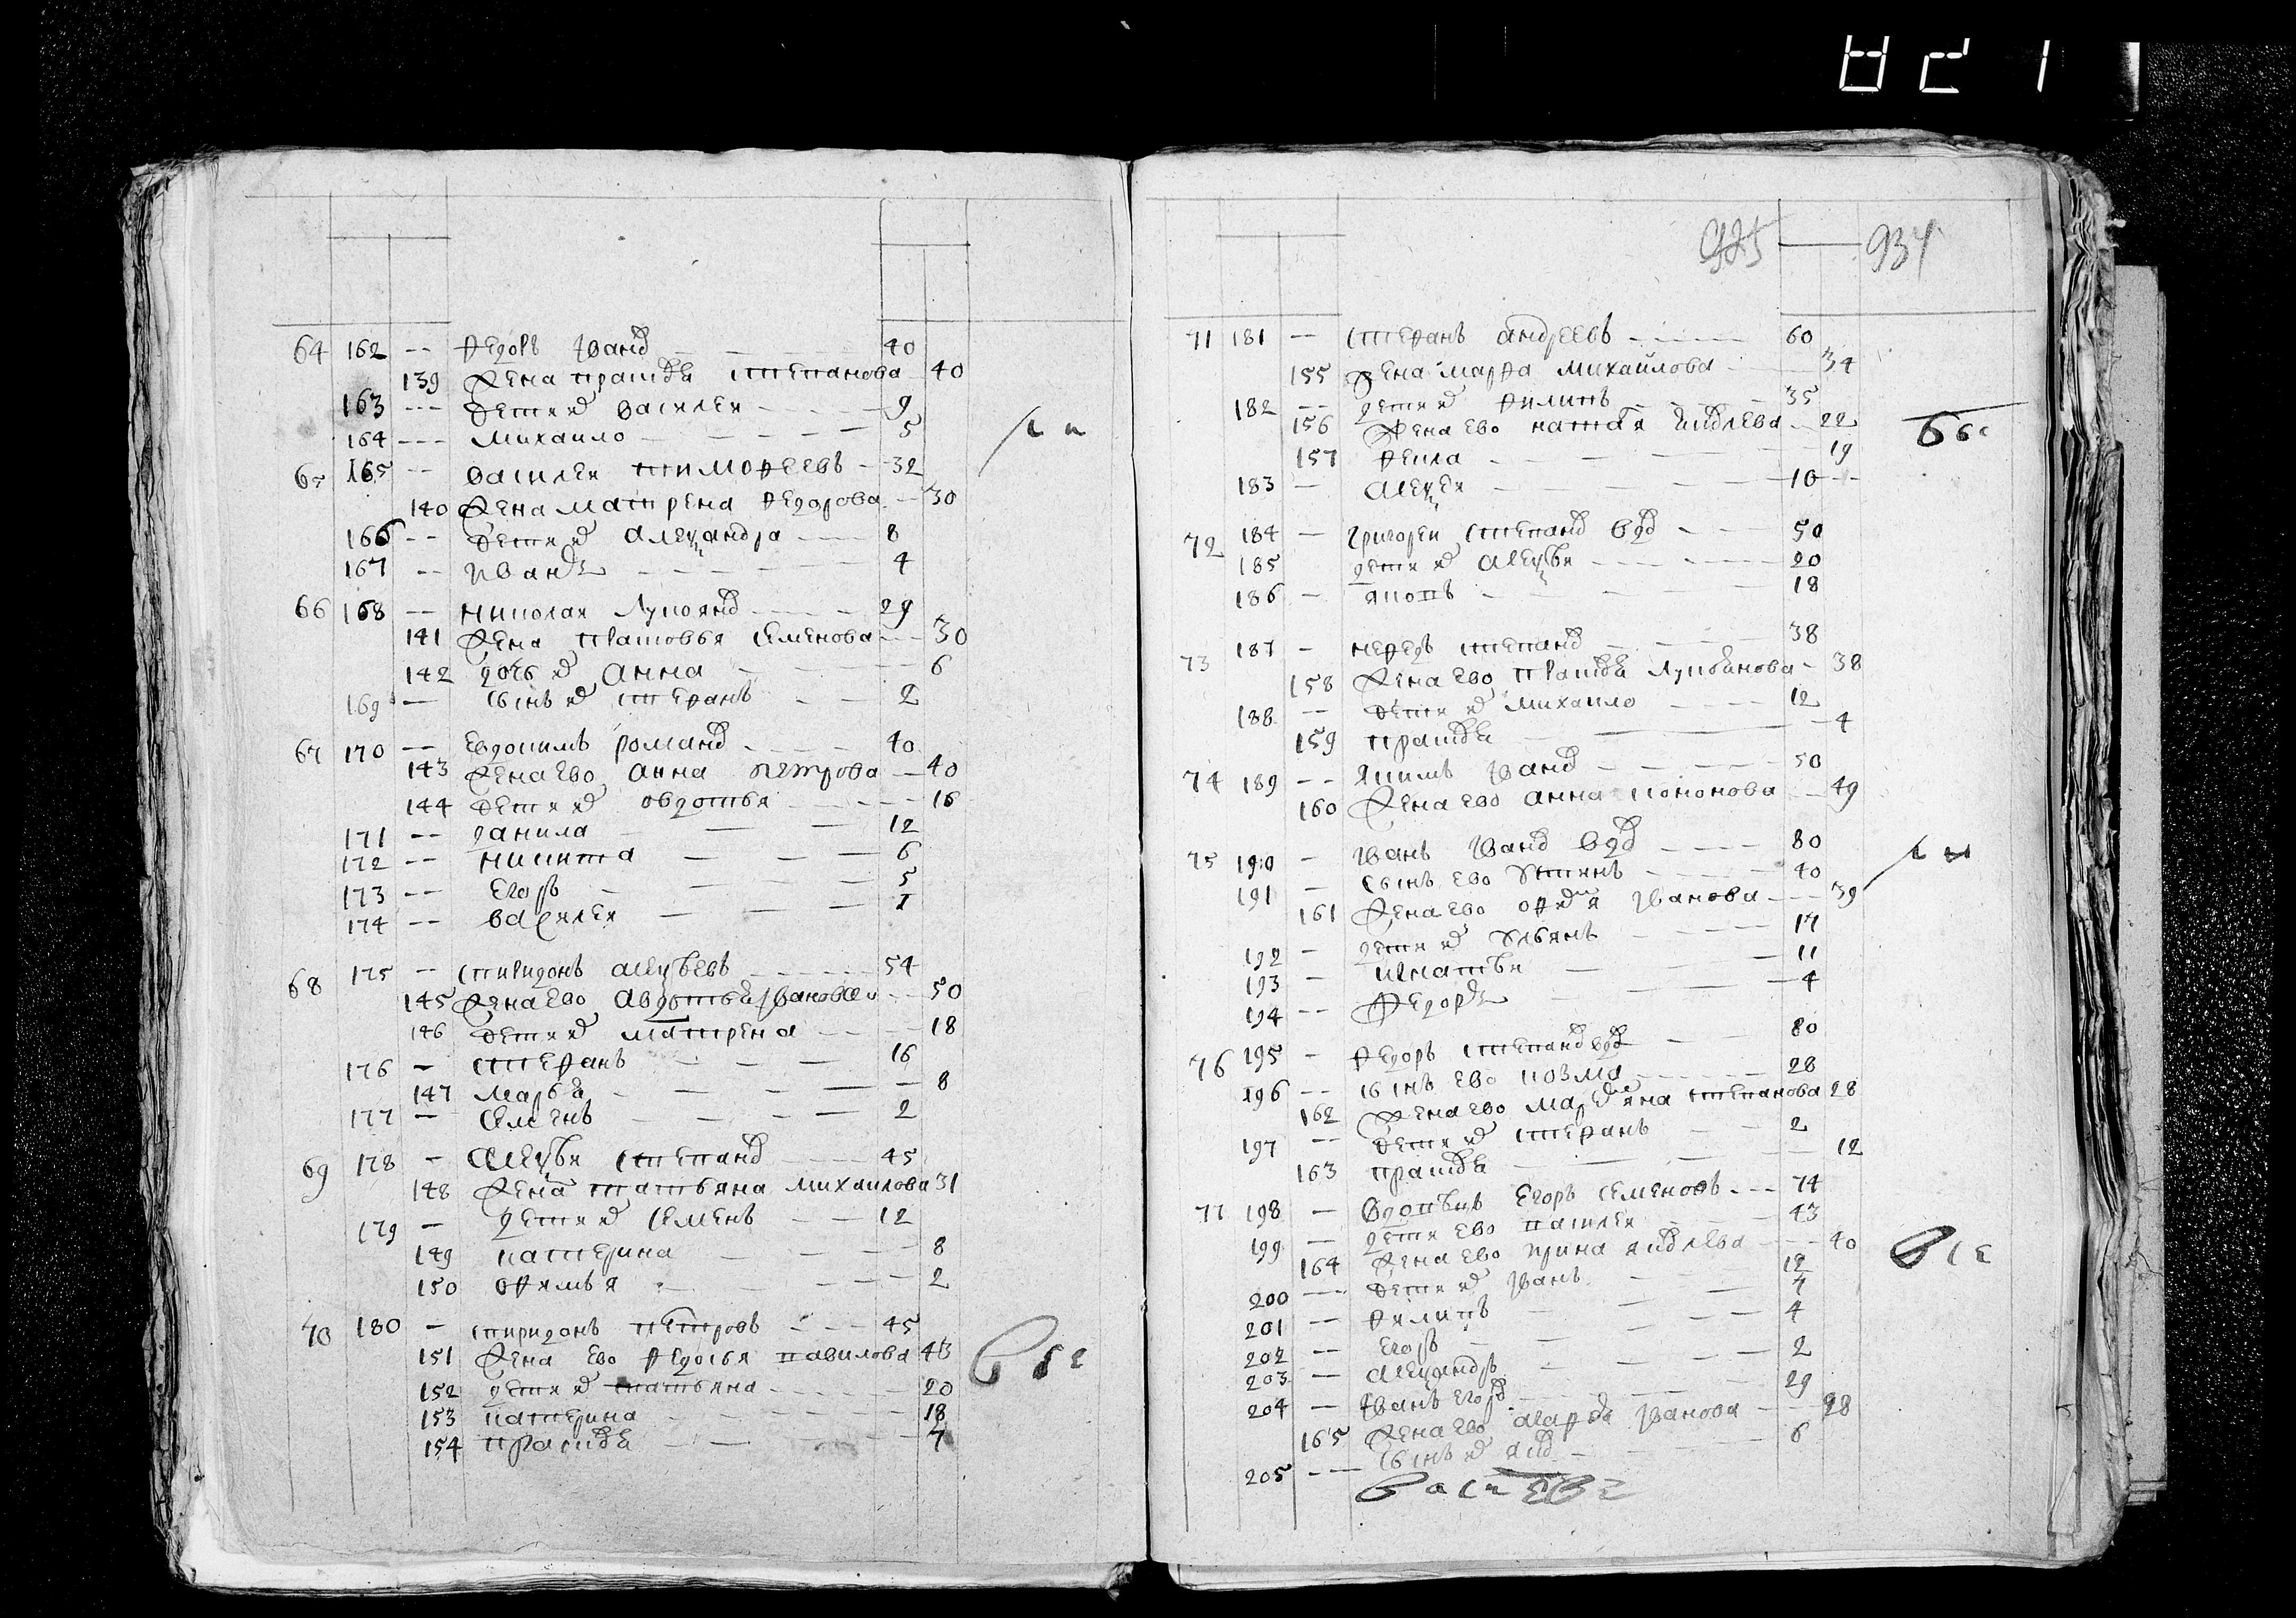 821
64 162 -- Федоръ Иванов 40
139 Жена прасковя степанова 40
163 --- Дети их василеи 9
164 --- михаило 5
65 165 -- василеи тимофеевъ 32
140 Жена матрена федорова 30
166 -- Дети их александра 8
167 -- Иванъ 4
66 168 -- николаи Лукоянов 29
141 Жена прасковья семенова 30
142 дочь их анна 6
169 -- сынъ их стефанъ 2
67 170 -- Евдокимъ романов 40
143 Жена ево анна петрова 40
144 Дети их овдотья 16
171 -- данила 12
172 -- никита 6
173 -- Егоръ 5
174 -- василеи 1
68 175 -- спиридонъ алексѣевъ 54
145 Жена ево авдотья Ивановa 50
146 Дети их матрена 18
176 -- стефанъ 16
147 марья 8
177 -- семенъ 2
69 178 -- алексѣи степанов 45
148 Жена татьяна михаилова 31
179 -- дети их семенъ 12
149 катерина 8
150 офимья 2
70 180 -- спиридонъ петровъ 45
151 Жена ево федосья павилова 43
152 дети их татьяна 20
153 катерина 18
154 прасковя 7
934
71 181 -- стефанъ андреевъ 60
155 Жена марфа михаилова 34
182 -- дети их филипъ 35
156 Жена ево наталя яковлева 22
157 фекла 19
183 -- алексеи 10
72 184 -- григореи степанов вдов 50
185 дети их алексѣи 20
186 -- якопъ 18
73 187 -- нефедъ степанов 38
158 Жена ево прасковя Лукоянова 38
188 -- Дети их михаило 12
159 прасковя 4
74 189 -- якимъ Иванов 50
160 Жена ево анна кононова 49
75 190 -- Иванъ Иванов вдов 80
191 -- сынъ ево Устинъ 40
161 Жена ево офимя Иванова 39
192 -- дети их Ульянъ 17
193 -- игнатьи 11
194 -- Федоръ 4
76 195 -- федоръ степанов вдов 80
196 -- сынъ ево козма 28
162 Жена ево мардяна степанова 28
197 -- Дети их стефанъ 2
163 прасковя 12
77 198 -- вдовѣцъ Егоръ семеновъ 74
199 -- дети ево василеи 43
164 Жена ево ирина яковлева 40
200 -- Дети их Иванъ 12
201 -- филипъ 7
202 -- Егоръ 4
203 -- александръ 2
204 -- Иванъ Егоров 29
165 Жена ево агафя Иванова 28
205 -- сынъ их яков 6